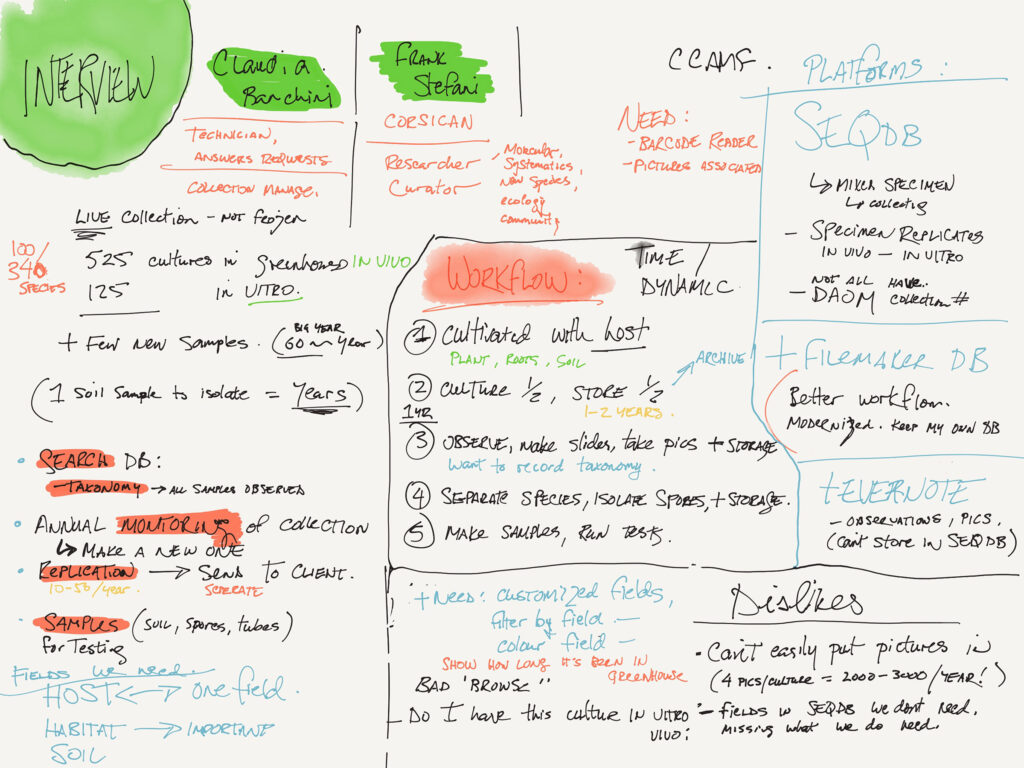 INTERVIEW
Claudia
Banchini
TECHNICIAN,
ANSWERS REQUESTS
COLLECTION MANAGE.
FRANK
Stefani
CORSICAN
Researcher
Curator
Molecular
Systematics,
New Species,
ecology
community
CCAMF.
NEED:
- BARCODE READER
- PICTURES ASSOCIATED
PLATFORMS:
SEQDB
↳ MIXER SPECIMEN
↳ collecting
- SPECIMEN REPLICATES
IN VIVO - IN VITRO
NOT ALL HAVE..
- DAOM collection #
+ FILEMAKER DB
Better workflow.
MODERNIZED. KEEP MY OWN DB
+ EVERNOTE
- OBSERVATIONS, PICS.
(Can't store in SEQDB)
LIVE collection - NOT frozen
100/
340
SPECIES
525 cultures in greenhouses IN VIVO
125 in VITRO.
+ Few new samples. (BIG YEAR 60 ~ year)
(1 soil sample to isolate = Years)
• SEARCH DB:
- TAXONOMY → ALL SAMPLES OBSERVED
• ANNUAL MONTORING of collection
↳ MAKE A NEW ONE
• REPLICATION → SEND TO CLIENT.
10-50/year.
• SAMPLES (SOIL, SPORES, TUBES)
for Testing
FIELDS we need.
HOST ↔ one field.
HABITAT → IMPORTANT
SOIL
WORKFLOW:
TIME /
DYNAMIC
① Cultivated with host
PLANT, ROOTS, SOIL
② CULTURE 1/2, STORE 1/2 → ARCHIVE
1YR
1-2 YEARS.
③ OBSERVE, make slides, take pics + STORAGE
Want to record taxonomy.
④ SEPARATE SPECIES, ISOLATE SPORES, + STORAGE.
⑤ MAKE SAMPLES, RUN TESTS.
+ NEED: CUSTOMIZED fields,
filter by field -
colour field -
SHOW HOW LONG IT'S BEEN IN
GREENHOUSE
BAD "BROWSE"
- Do I have this culture IN VITRO
VIVO:
Dislikes
• Can't easily put pictures in
(4 PICS/CULTURE = 2000-3000/YEAR!)
- fields in SEQDB we don't need.
missing what we do need.